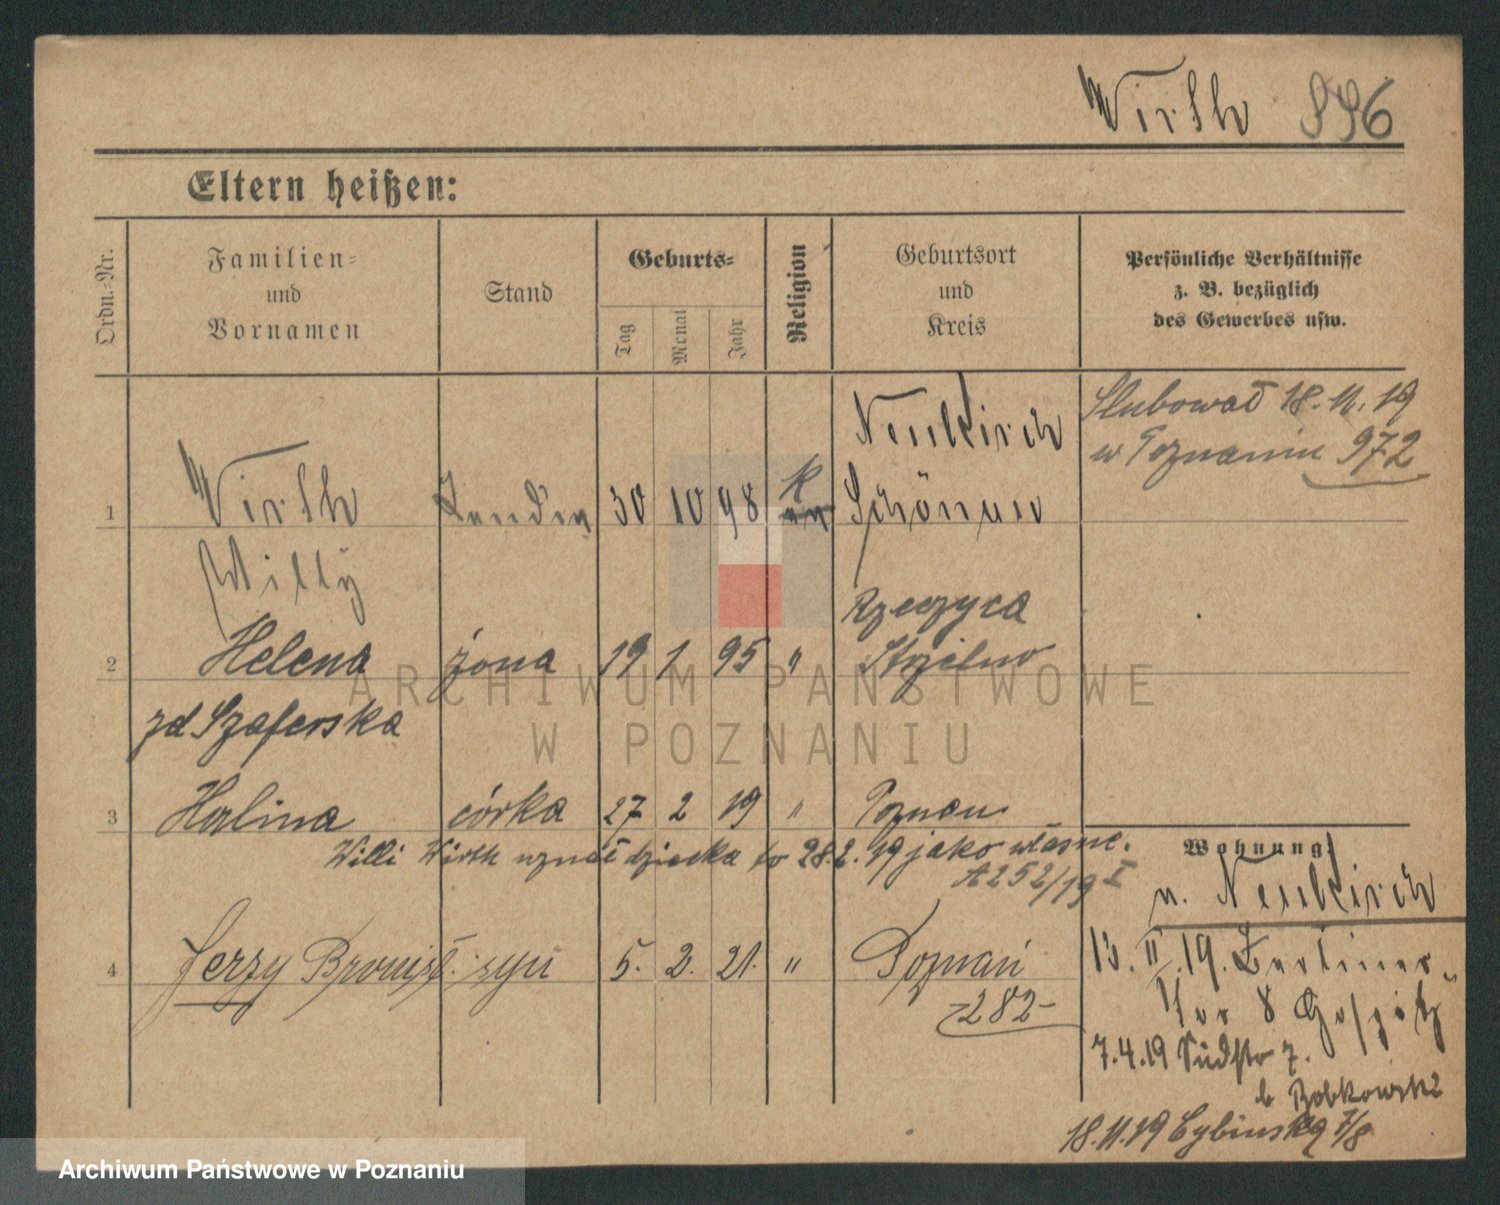 Wirth 996
Eltern heißen:
Ordn.-Nr.
Familien-
und
Vornamen
Stand
Geburts-
Tag
Monat
Jahr
Religion
Geburtsort
und
Kreis
Persönliche Verhältnisse
z. B. bezüglich
des Gewerbes usw.
Slubował 18.11.19
w Poznaniu 972
Neukirch
1 Wirth 30 10 98 k Schönau
Willy
Rzeczyca
2 Helena żona 19 1 95 " Strzelno
zd Szaferska
3 Halina córka 27 2 19 " Poznań
Willi Wirth uznał dziecko to 28.2.19 jako własne.
A 252/19 I
Wohnung:
n. Neukirch
4 Jerzy Bronisł. syn 5. 2. 21. " Poznań
-282-
13.II.19. Berliner-
tor 8 Gospitz
7.4.19 Südstr 7.
b Bobkowski
18.11.19 Cybinska 7/8
ARCHIWUM PAŃSTWOWE
W POZNANIU
Archiwum Państwowe w Poznaniu